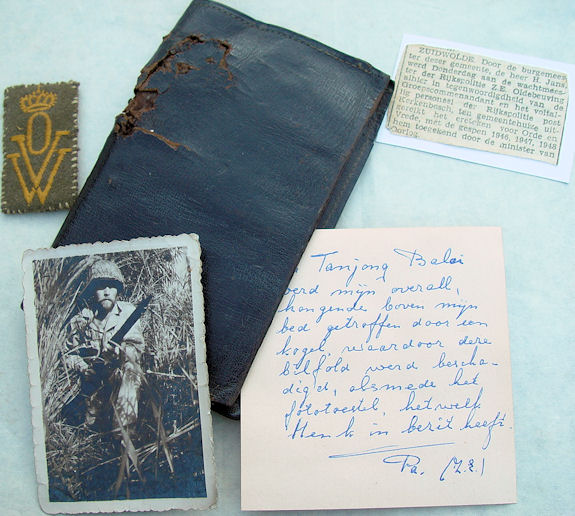 OVW
ZUIDWOLDE. Door de burgemees-
ter dezer gemeente, de heer H. Jans,
werd Donderdag aan de wachtmees-
ter der Rijkspolitie Z.E. Oldebeuving
alhier in tegenwoordigheid van de
Groepscommandant en het voltal-
lig personeel der Rijkspolitie post
Kerkenbosch, ten gemeentehuize uit-
gereikt het ereteken voor Orde en
Vrede, met de gespen 1946, 1947, 1948
hem toegekend door de minister van
Oorlog.
Tanjong Balai
werd mijn overall,
hangende boven mijn
bed getroffen door een
kogel, waardoor deze
bilfold werd bescha-
digd, alsmede het
fototoestel, hetwelk
Henk in bezit heeft.
Pa. (Z.E.)